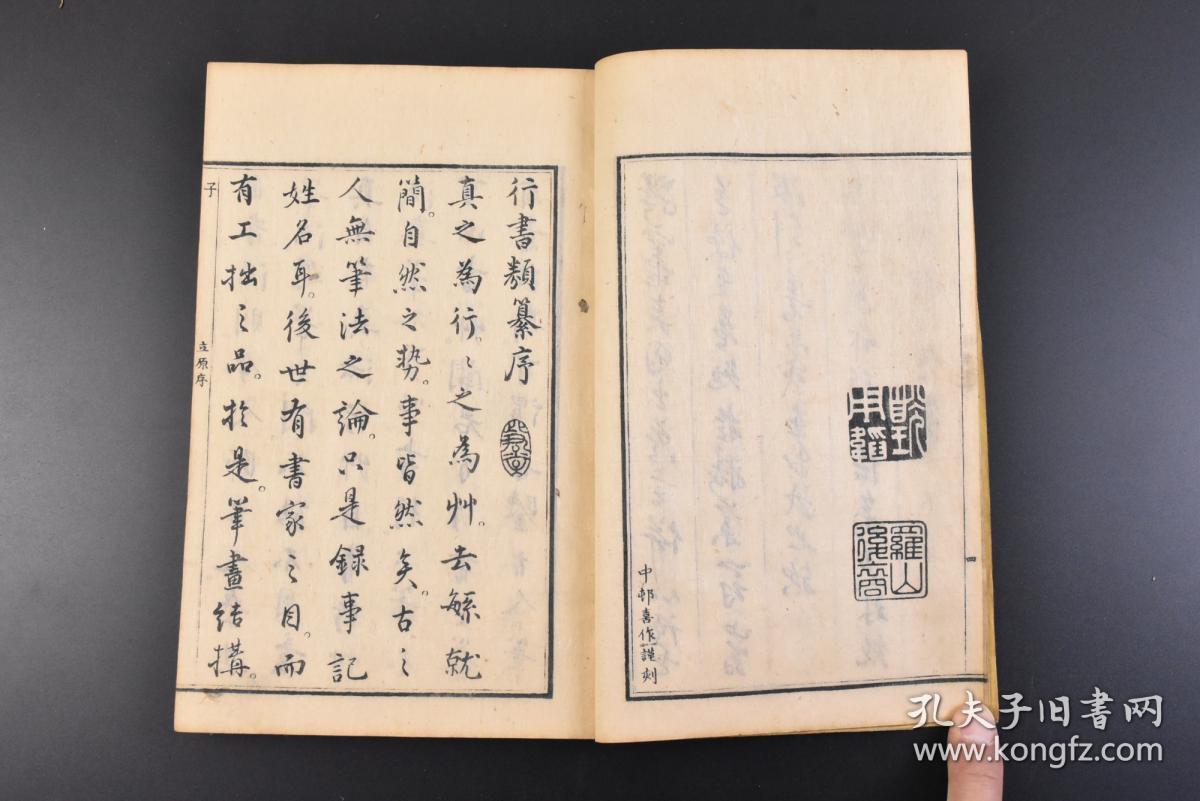 羅山
後裔
四
中邨喜作謹刻
行書類纂序
真之為行〻之為艸。去緐就
簡。自然之勢。事皆然矣。古之
人無筆法之論。只是録事記
姓名耳。後世有書家之目。而
有工拙之品。於是筆畫結搆。
子
立原序
孔夫子旧书网
www.kongfz.com